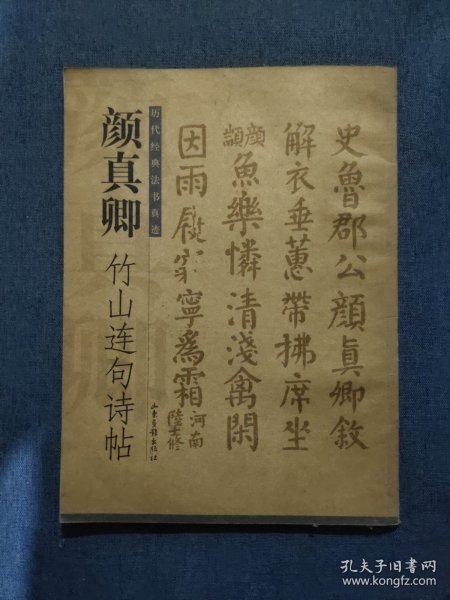 历代经典法书真迹
颜真卿
竹山连句诗帖
山东画报出版社
史魯郡公顏真卿敘
解衣垂蕙帶拂席坐
顏顓
魚樂憐清淺禽閑
因雨
寧為霜
河南
陸士修
孔夫子旧书网
www.kongfz.com